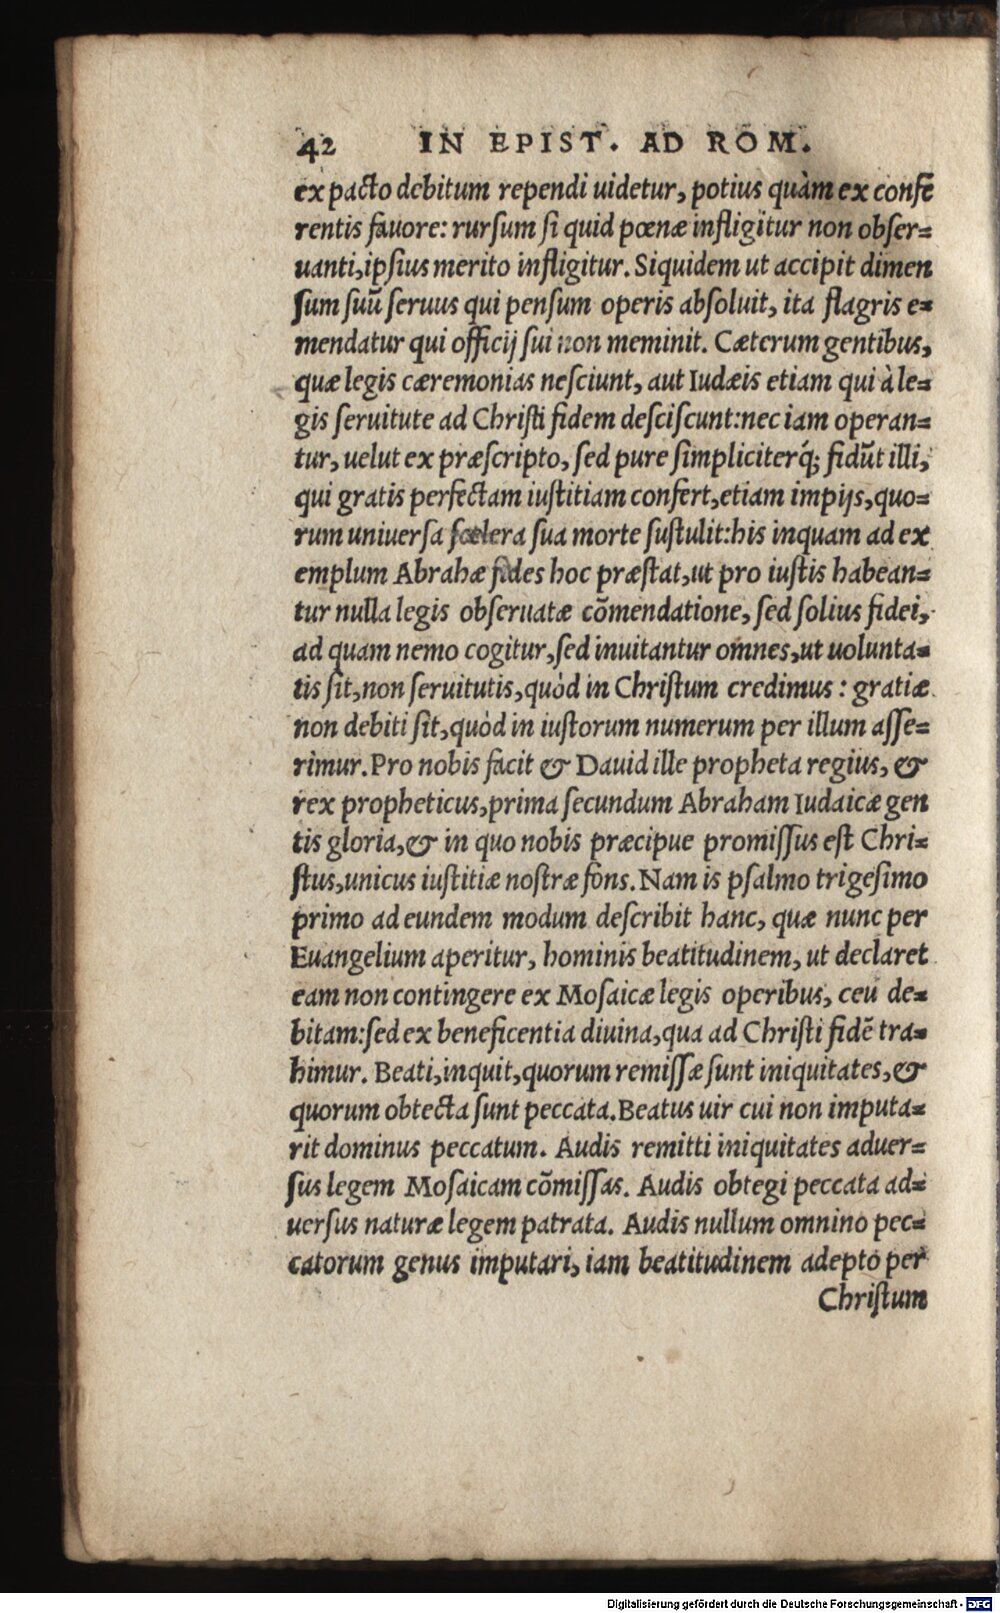 42 IN EPIST. AD ROM.
ex pacto debitum rependi uidetur, potius quàm ex confe
rentis fauore: rursum si quid pœnæ infligitur non obser=
uanti, ipsius merito infligitur. Siquidem ut accipit dimen
sum suū seruus qui pensum operis absoluit, ita flagris e=
mendatur qui officij sui non meminit. Cæterum gentibus,
quæ legis cæremonias nesciunt, aut Iudæis etiam qui à le=
gis seruitute ad Christi fidem desciscunt: nec iam operan=
tur, uelut ex præscripto, sed pure simpliciterq́; fidūt illi,
qui gratis perfectam iustitiam confert, etiam impijs, quo=
rum uniuersa scelera sua morte sustulit: his inquam ad ex
emplum Abrahæ fides hoc præstat, ut pro iustis habean=
tur nulla legis obseruatæ cōmendatione, sed solius fidei,
ad quam nemo cogitur, sed inuitantur omnes, ut uolunta=
tis sit, non seruitutis, quòd in Christum credimus: gratiæ
non debiti sit, quòd in iustorum numerum per illum asse=
rimur. Pro nobis facit & Dauid ille propheta regius, &
rex propheticus, prima secundum Abraham Iudaicæ gen
tis gloria, & in quo nobis præcipue promissus est Chri=
stus, unicus iustitiæ nostræ fons. Nam is psalmo trigesimo
primo ad eundem modum describit hanc, quæ nunc per
Euangelium aperitur, hominis beatitudinem, ut declaret
eam non contingere ex Mosaicæ legis operibus, ceu de=
bitam: sed ex beneficentia diuina, qua ad Christi fidē tra=
himur. Beati, inquit, quorum remissæ sunt iniquitates, &
quorum obtecta sunt peccata. Beatus uir cui non imputa=
rit dominus peccatum. Audis remitti iniquitates aduer=
sus legem Mosaicam cōmissas. Audis obtegi peccata ad=
uersus naturæ legem patrata. Audis nullum omnino pec=
catorum genus imputari, iam beatitudinem adepto per
Christum
Digitalisierung gefördert durch die Deutsche Forschungsgemeinschaft - DFG